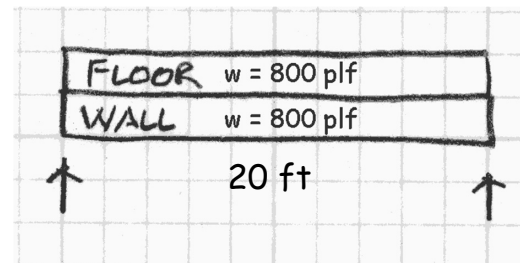 FLOOR w = 800 plf
WALL w = 800 plf
20 ft